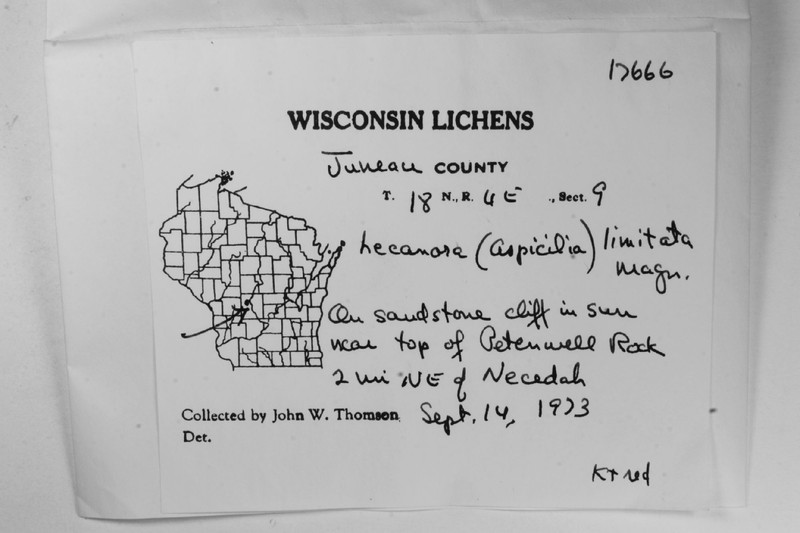 17666
WISCONSIN LICHENS
Juneau COUNTY
T. 18 N., R. 4 E ., Sect. 9
Lecanora (Aspicilia) limitata
Magn.
On sandstone cliff in sun
near top of Petenwell Rock
2 mi NE of Necedah
Collected by John W. Thomson Sept. 14, 1973
Det.
K+ red